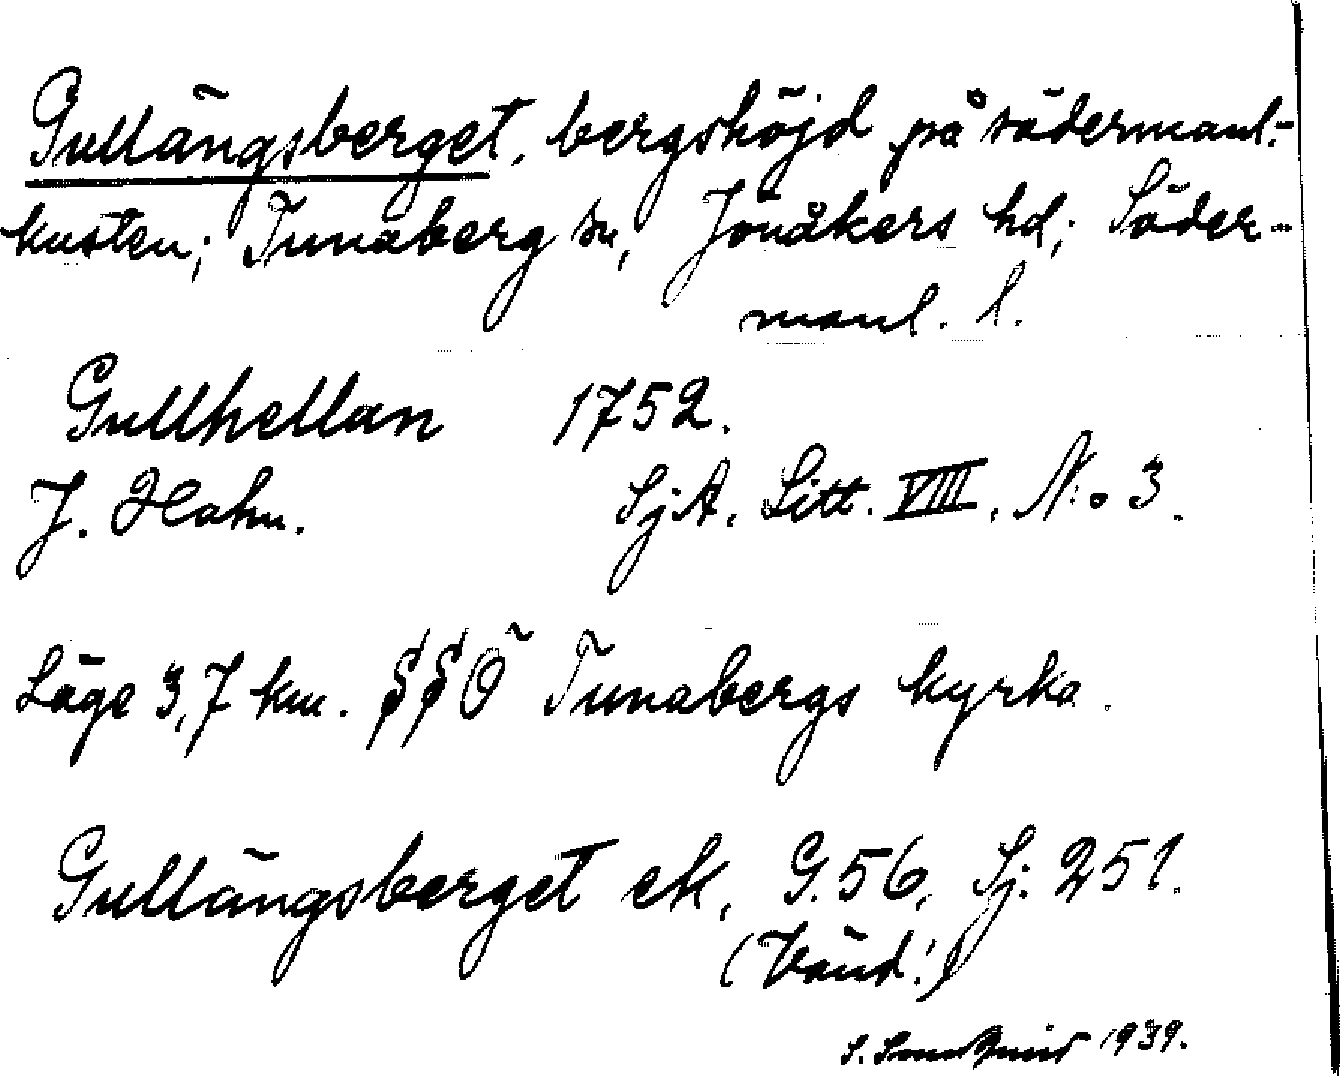 Gullängsberget, bergshöjd på södermanl.-
kusten; Tunaberg sn, Jönåkers hd; Söder-
manl. l.
Gullhellan 1752.
J. Hahn. SjA. Litt. VIII. N:o 3.
Läge 3,7 km. SSÖ Tunabergs kyrka.
Gullängsberget ek. G.56, Sj. 251.
(Vänd!)
S. 1939.